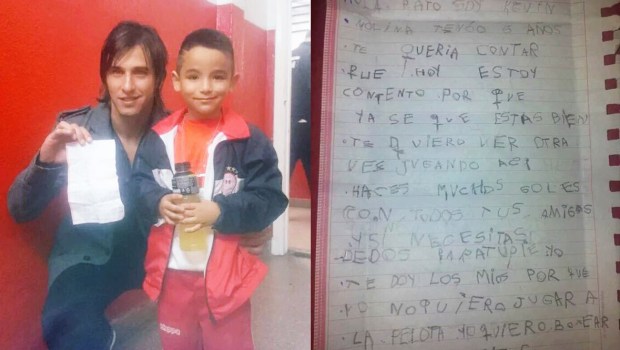 HOLA RATO SOY KEVIN
· MOLINA TENGO AÑOS
· TE QUERIA CONTAR
QUE HOY ESTOY
CONTENTO POR QUE
YA SE QUE ESTAS BIEN
· TE QUIERO VER OTRA
VES JUGANDO
· HACES MUCHOS GOLES
CON TODOS TUS AMIGOS
Y SI NECESITAS
DEDOS PARA TU PIE YO
· TE DOY LOS MIOS POR QUE
YO NO QUIERO JUGAR A
· LA PELOTA YO QUIERO BOXEAR
kappa